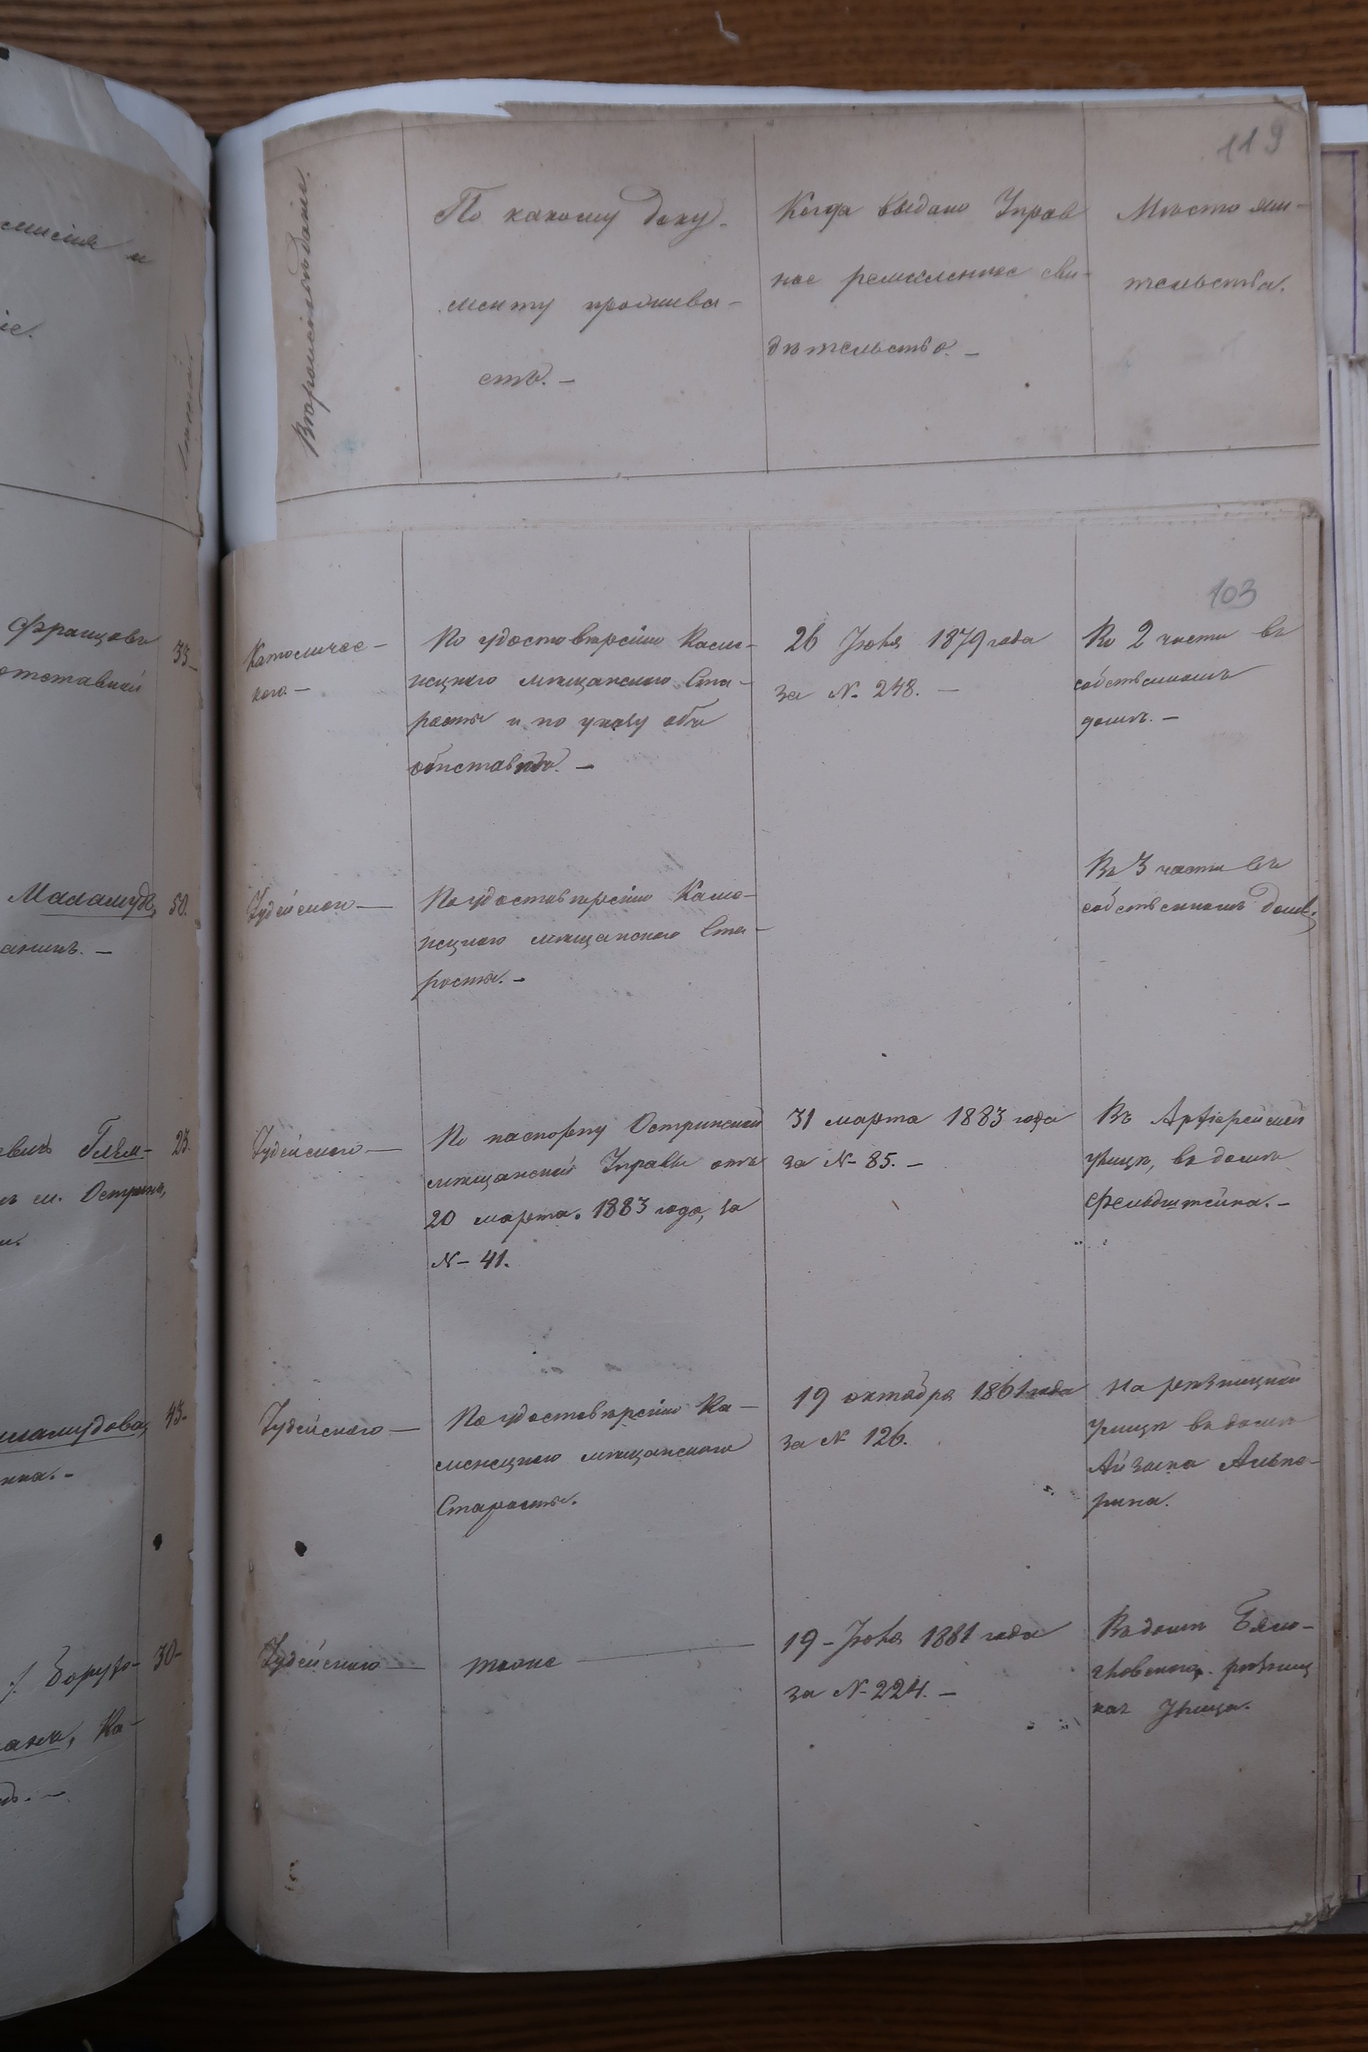 119
Вѣроисповѣданіе.
По какому доку-
менту прожива-
етъ. –
Когда выдано Управ
ное ремесленное сви-
дѣтельство. –
Мѣсто жи-
тельства.
103
Францовъ
отставной
33-
Католичес-
каго –
По удостовѣренію Каме-
нецкаго мѣщанскаго Ста-
росты и по указу объ
отставкѣ. –
26 Іюня 1879 года
за № 248. –
Во 2 части въ
собственномъ
домѣ. –
Маламудъ,
анинъ. –
50.
Іудейскаго –
По удостовѣренію Каме-
нецкаго мѣщанскаго Ста-
росты. –
Въ 3 части въ
собственномъ домѣ,
евичъ Гельм-
м. Острина,
23.
Іудейскаго –
По паспорту Остринской
мѣщанской Управы отъ
20 марта 1883 года, за
№ 41.
31 марта 1883 года
за № 85. –
Въ Архіерейской
улицѣ, въ домѣ
Фельдштейна. –
ламудова,
нка. –
45-
Іудейскаго –
По удостовѣренію Ка-
менецкаго мѣщанскаго
Старосты.
19 октября 1861 года
за № 126.
На рѣзницкой
улицѣ въ домѣ
Айзика Альпе-
рина.
Борухо-
ана, Ка-
30-
Іудейскаго –
тоже –
19 – Іюня 1881 года
за № 224. –
Въ домѣ Бяло-
рѣзниц
кая улица.